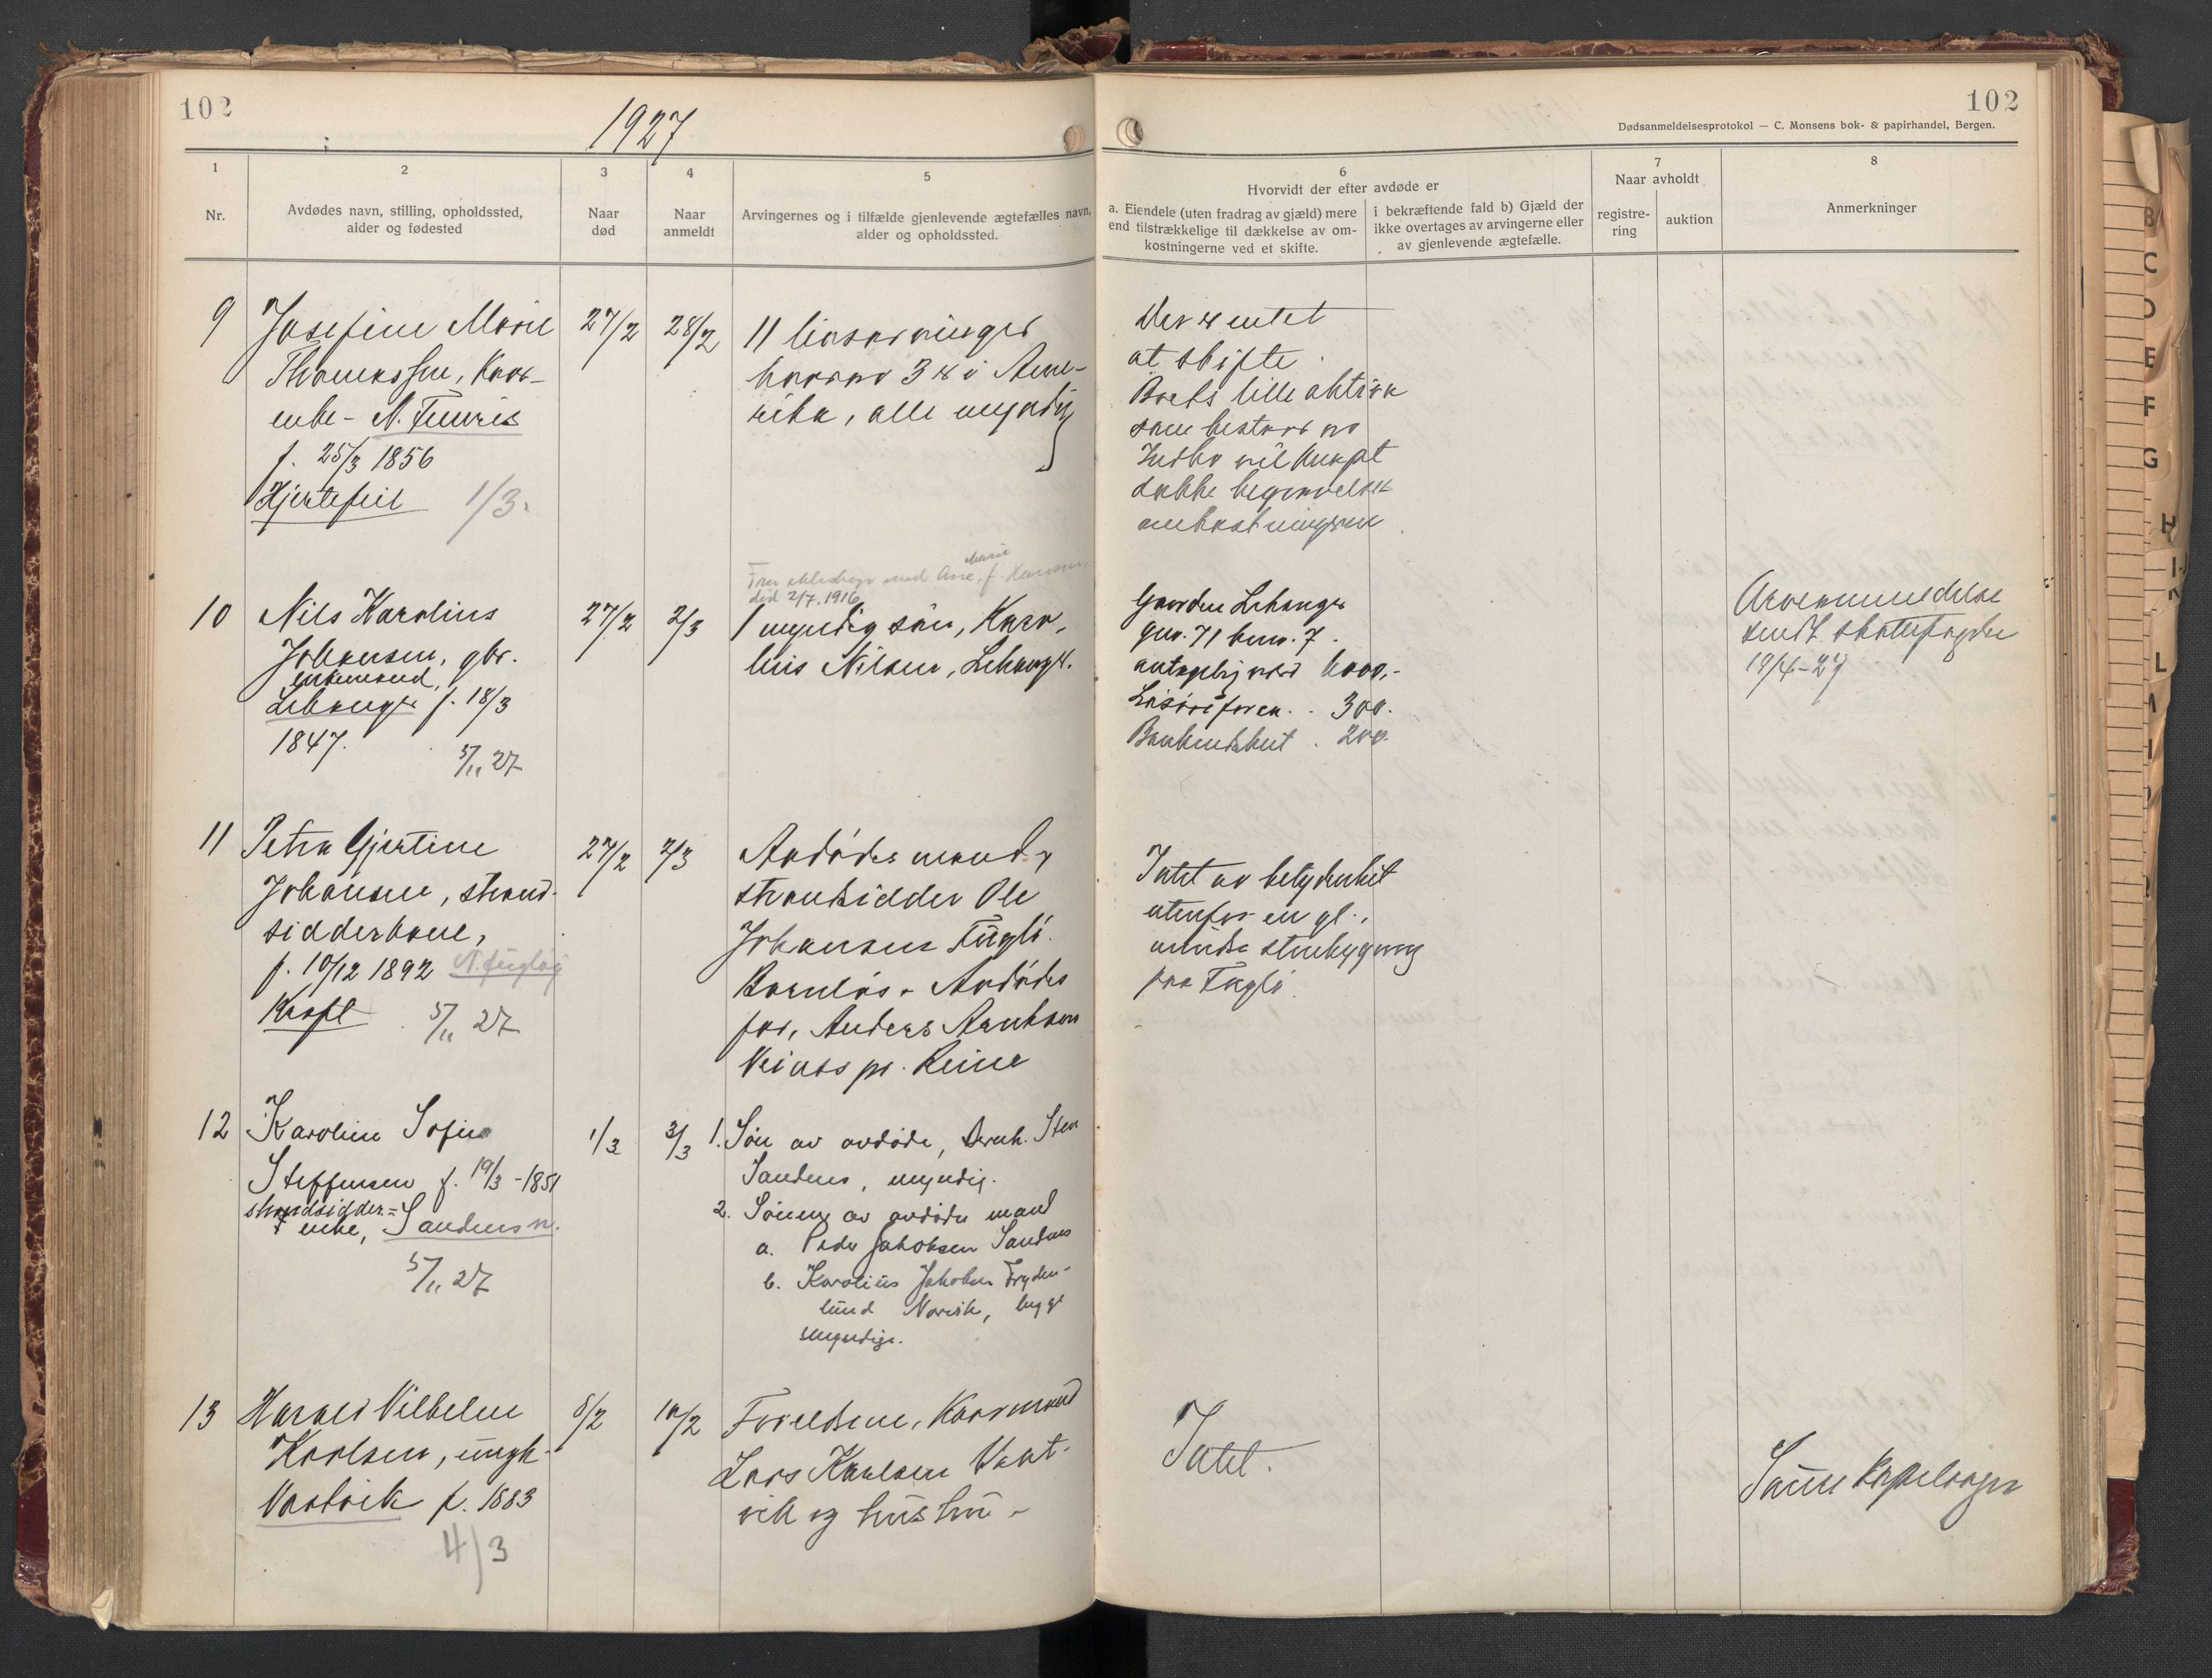 102
1927
1
2
3
4
5
Nr.
Avdødes navn, stilling, opholdssted,
alder og fødested
Naar
død
Naar
anmeldt
Arvingernes og i tilfælde gjenlevende ægtefælles navn,
alder og opholdssted.
9
Josefine Marie
Thomassen, kaar-
enke - N.
f. 25/3 1856
Hjertefeil 1/3.
27/2
28/2
11 livsarvinger
hvorav 3 er i Ame-
rika, alle myndig
10
Nils Karolius
Johansen, gbr.
enkemand,
f. 18/3
1847.
5/11 27
27/2
2/3
Marie
med Ane, f. Hansen,
død 2/7. 1916
1 myndig søn, Karo-
lius Nilsen,
11
Petra Gjertine
Johansen, strand-
sidderkone,
f. 10/12 1892 N. Fugløy
Kræft 5/11 27
27/2
2/3
Avdødes mand,
strandsidder Ole
Johansen Fuglø.
Barnløs. Avdødes
far, Anders
pr. Reine
12
Karoline Sofie
Steffensen f. 19/3 - 1851
strandsidder=
enke, Sandnes n.
5/11 27
1/3
3/3
1. Søn av avdøde, Sten
Sandnes, myndig.
2. Sønner av avdødes mand
a. Peder Jakobsen Sandnes
b. Karolius Jakobsen Fryden-
lund Narvik, begge
myndige.
13
Harald Vilhelm
Karlsen, ungk.
f. 1883
4/3
8/2
10/2
Forældrene, Kaarmand
Lars Karlsen
vik og hustru -
102
Dødsanmeldelsesprotokol — C. Monsens bok- & papirhandel, Bergen.
6
Hvorvidt der efter avdøde er
a. Eiendele (uten fradrag av gjæld) mere
end tilstrækkelige til dækkelse av om-
kostningerne ved et skifte.
i bekræftende fald b) Gjæld der
ikke overtages av arvingerne eller
av gjenlevende ægtefælle.
7
Naar avholdt
registre-
ring
auktion
8
Anmerkninger
Der er intet
at skifte.
Boets lille aktiva
som bestaar av
Indbo vil knapt
dække begravelses
omkostningerne.
Gaarden
gnr. 71 bnr. 7.
antagelig værd 6000,-
Løsøre foren. . 300.
Bankindskut . 200.
Arveanmeldelse
sendt skattefogden
19/4-27
Intet av betydenhet
utenfor en gl.,
mindre stuebygning
paa Fuglø.
Intet.
Samme
B
C
D
E
F
G
H
I-J
K
L
M